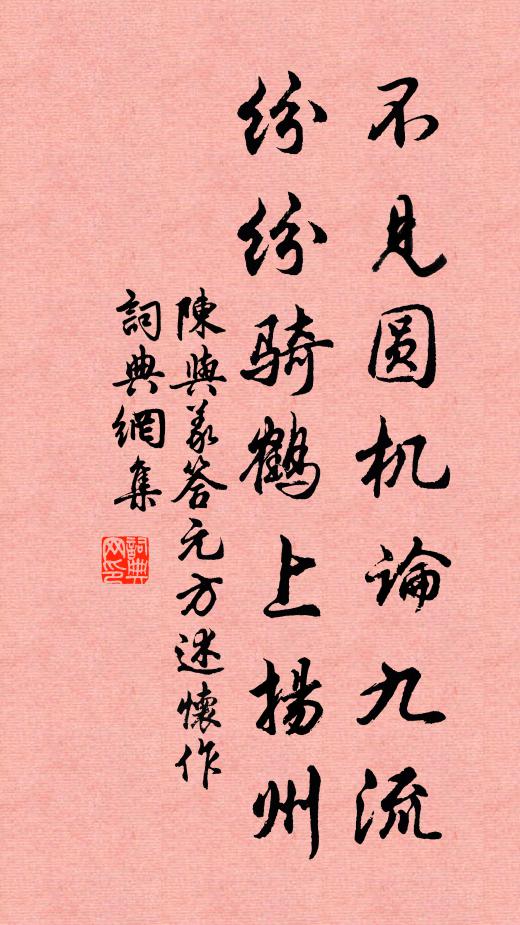 不见圆机論九流
纷纷骑鹤上揚州
陳與義答元方述懷作
詞典網集
詞典网印